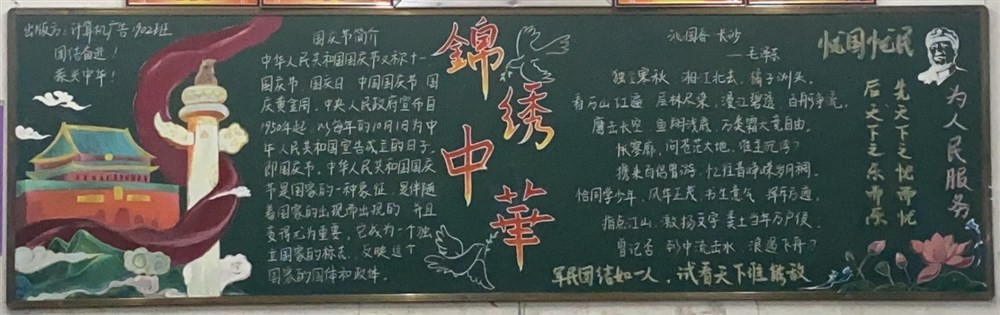 出版方：计算机广告1902班
团结奋进！
振兴中华！
国庆节简介
中华人民共和国国庆节又称十一
国庆节、国庆日、中国国庆节、国
庆黄金周。中央人民政府宣布自
1950年起，以每年的10月1日为中
华人民共和国宣告成立的日子，
即国庆节。中华人民共和国国庆
节是国家的一种象征，是伴随
着国家的出现而出现的，并且
变得尤为重要。它成为一个独
立国家的标志，反映这个
国家的国体和政体。
錦绣中華
沁园春 长沙
—毛泽东
独立寒秋，湘江北去，橘子洲头。
看万山红遍，层林尽染，漫江碧透，百舸争流。
鹰击长空，鱼翔浅底，万类霜天竞自由。
怅寥廓，问苍茫大地，谁主沉浮？
携来百侣曾游，忆往昔峥嵘岁月稠。
恰同学少年，风华正茂，书生意气，挥斥方遒。
指点江山，激扬文字，粪土当年万户侯。
曾记否，到中流击水，浪遏飞舟？
军民团结如一人，试看天下谁能敌
忧国忧民
先天下之忧而忧
后天下之乐而乐
为人民服务